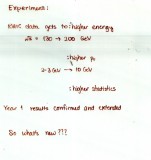 Experiment:
RHIC data gets to : higher energy
√s = 130 → 200 GeV
: higher pt
2-3 GeV → 10 GeV
: higher statistics
Year 1 results confirmed and extended
So what's new ???